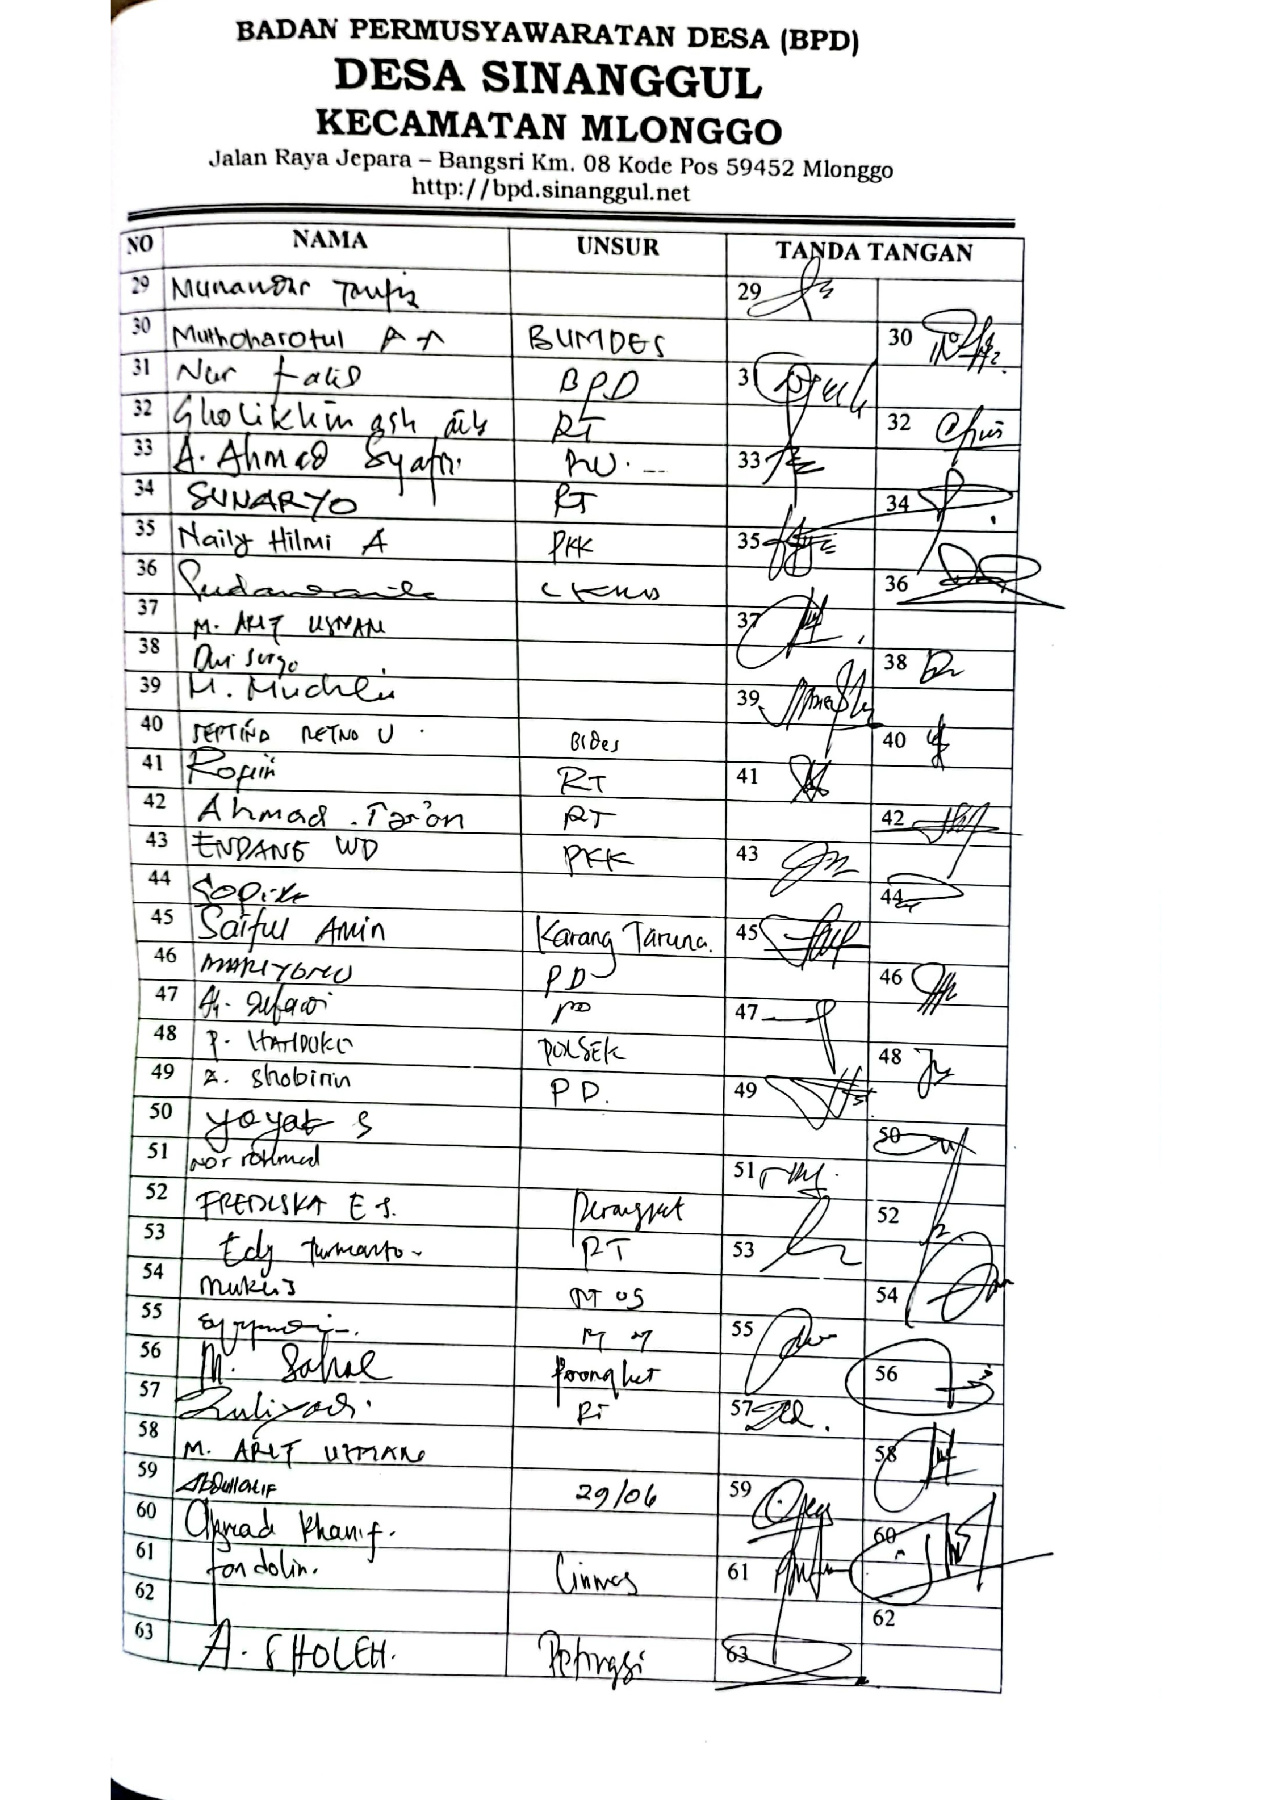 BADAN PERMUSYAWARATAN DESA (BPD)
DESA SINANGGUL
KECAMATAN MLONGGO
Jalan Raya Jepara – Bangsri Km. 08 Kode Pos 59452 Mlonggo
http://bpd.sinanggul.net
NO NAMA UNSUR TANDA TANGAN
29 Munandar Taufiq 29
30 Muthoharotul A A BUMDES 30
31 Nur Falis BPD 3
32 RT 32
33 A. Ahmad Syafi'i RW. 33
34 SUNARYO RT 34
35 Naily Hilmi A PKK 35
36 36
37 M. ARIF USMAN 37
38 Dwi Suryo 38
39 M. Muchlis 39
40 SEPTINA RETNO U Bides 40
41 Ropi'i RT 41
42 Ahmad RT 42
43 ENDANG WD PKK 43
44 44
45 Saiful Amin Karang Taruna. 45
46 MARIYONO PD 46
47 PD 47
48 P. HANDOKO POLSEK 48
49 Z. Shobirin PD. 49
50 Yoyak S 50
51 Nor rohmad 51
52 FREDISKA E S. Perangkat 52
53 Edy RT 53
54 Muklis RT 05 54
55 55
56 M. Sahal Perangkat 56
57 Zuliyadi. RT 57
58 M. ARIF USMAN 58
59 Abdul Latif 29/06 59
60 Ahmad Khanif. 60
61 Fandolin. Linmas 61
62 62
63 A. SHOLEH. Petinggi 63